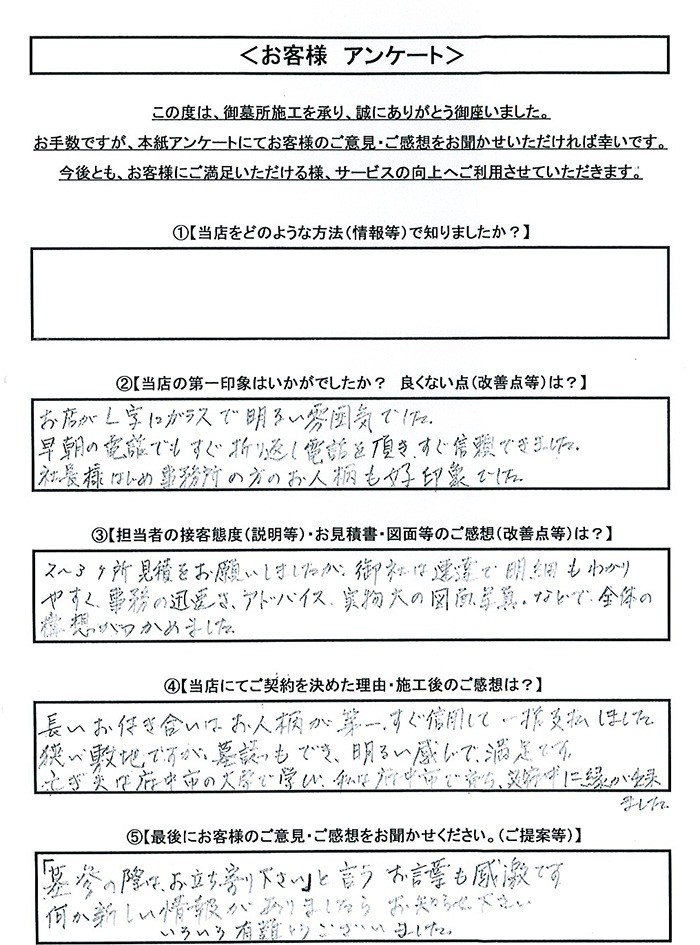 ＜お客様　アンケート＞
この度は、御墓所施工を承り、誠にありがとう御座いました。
お手数ですが、本紙アンケートにてお客様のご意見・ご感想をお聞かせいただければ幸いです。
今後とも、お客様にご満足いただける様、サービスの向上へご利用させていただきます。
①【当店をどのような方法（情報等）で知りましたか？】
②【当店の第一印象はいかがでしたか？　良くない点（改善点等）は？】
お店がL字にガラスで明るい雰囲気でした。
早朝の電話でもすぐ折り返し電話を頂き、すぐ信頼できました。
社長様はじめ事務所の方のお人柄も好印象でした。
③【担当者の接客態度（説明等）・お見積書・図面等のご感想（改善点等）は？】
2～3ヶ所見積をお願いしましたが、御社は迅速で明細もわかり
やすく、事務の迅速さ、アドバイス、実物大の図面、写真、などで、全体の
構想がつかめました。
④【当店にてご契約を決めた理由・施工後のご感想は？】
長いお付き合いはお人柄が第一、すぐ信用して一括支払しました。
狭い敷地ですが、墓誌もでき、明るい感じで、満足です。
亡き夫は府中市の大学で学び、私は府中市で育ち、府中に縁が出来
ました。
⑤【最後にお客様のご意見・ご感想をお聞かせください。（ご提案等）】
「墓参の際は、お立ち寄り下さい」と言う お言葉も感激です
何か新しい情報がありましたら お知らせ下さい
いろいろ有難とうございました。